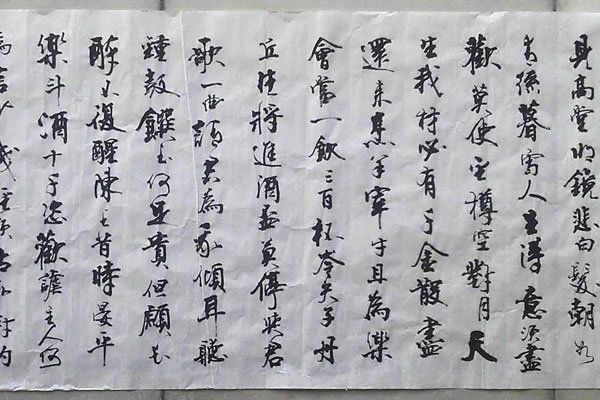 見高堂明鏡悲白髮朝如
青絲暮雪人生得意須盡
歡莫使金樽空對月天
生我材必有千金散盡
還來烹羊宰牛且為樂
會當一飲三百杯岑夫子丹
丘生將進酒盃莫停與君
歌一曲請君為我傾耳聽
鍾鼓饌玉何足貴但願長
醉不復醒陳王昔時宴平
樂斗酒十千恣歡謔主人何
為言少